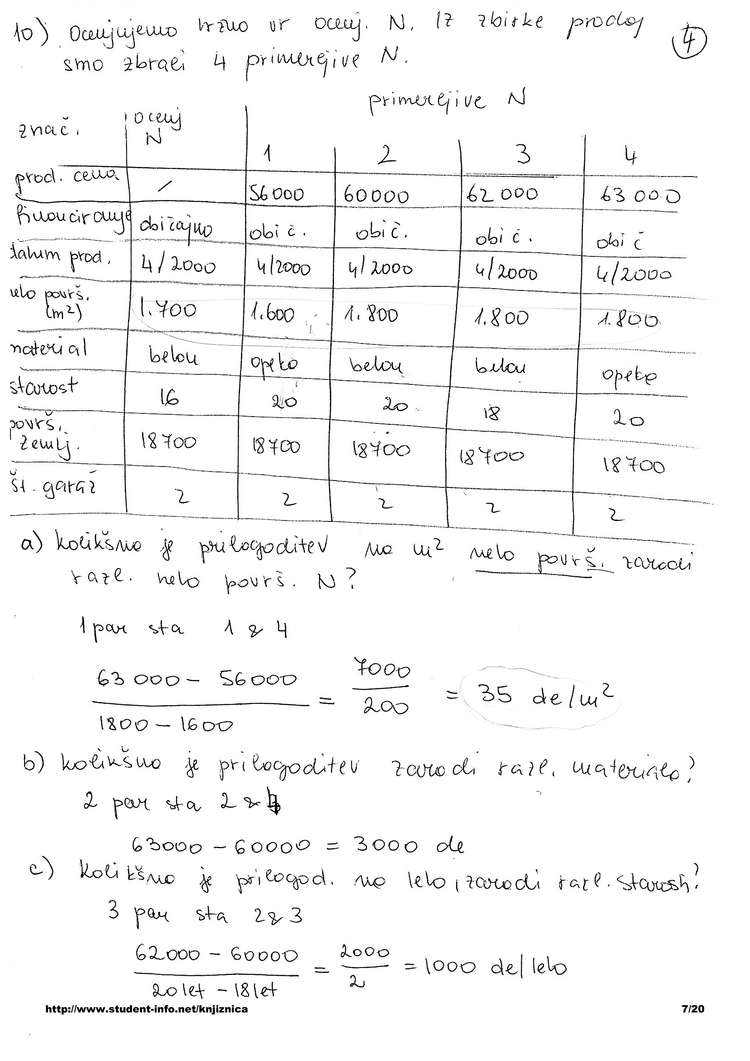 10) Ocenjujemo tržno vr ocenj. N. Iz zbirke prodaj
smo zbrali 4 primerljive N.
4
primerljive N
znač. ocenj N 1 2 3 4
prod. cena / 56000 60000 62 000 63 000
financiranje običajno obič. obič. obič. obič
datum prod. 4/2000 4/2000 4/2000 4/2000 4/2000
neto površ. (m²) 1.700 1.600 1.800 1.800 1.800
material beton opeka beton beton opeka
starost 16 20 20 18 20
površ. zemlj. 18700 18700 18700 18700 18700
št. garaž 2 2 2 2 2
a) kolikšna je prilagoditev na m² neto površ. zaradi
razl. neto površ. N?
1 par sta 1 & 4
63 000 - 56000 / 1800 - 1600 = 7000 / 200 = 35 de/m²
b) kolikšna je prilagoditev zaradi razl. materiala?
2 par sta 2 & 4
63000 - 60000 = 3000 de
c) kolikšna je prilagod. na leto, zaradi razl. starosti?
3 par sta 2 & 3
62000 - 60000 / 20 let - 18 let = 2000 / 2 = 1000 de/leto
http://www.student-info.net/knjiznica 7/20